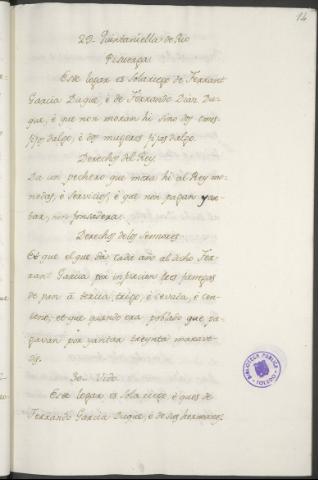 14
29- Quintaniella de Rio
Pisuerga:
Este logar es Solariego de Ferrant
Garcia Duque, è de Ferrando Dian Du-
que, è que non moran hi sino dos omes
fijosdalgo, è dos mugeres fijasdalgo.
Derechos del Rey.
Da un pechero que mora hi al Rey mo-
nedas, è servicios, è que non pagan yan-
tar, nin fonsadera.
Derechos delos Sennores.
Et que el que dà cada año al dicho Fer-
rant Garcia por infurcion tres fanegas
de pan à tercia, trigo, è cevada, è cen-
teno, et que quando era poblado que pa-
gavan por yantar treynta marave-
dis.
30- Vido
Este logar es Solariego, è ques de
Ferrando Garcia Duque, è de sus hermanos.
BIBLIOTECA PUBLICA
TOLEDO